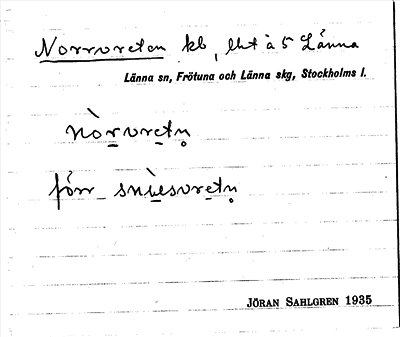 Norrvreten kb, lht à 5 Länna
Länna sn, Frötuna och Länna skg, Stockholms l.
nòrvretn̥
förr snùesvretn̥
JÖRAN SAHLGREN 1935